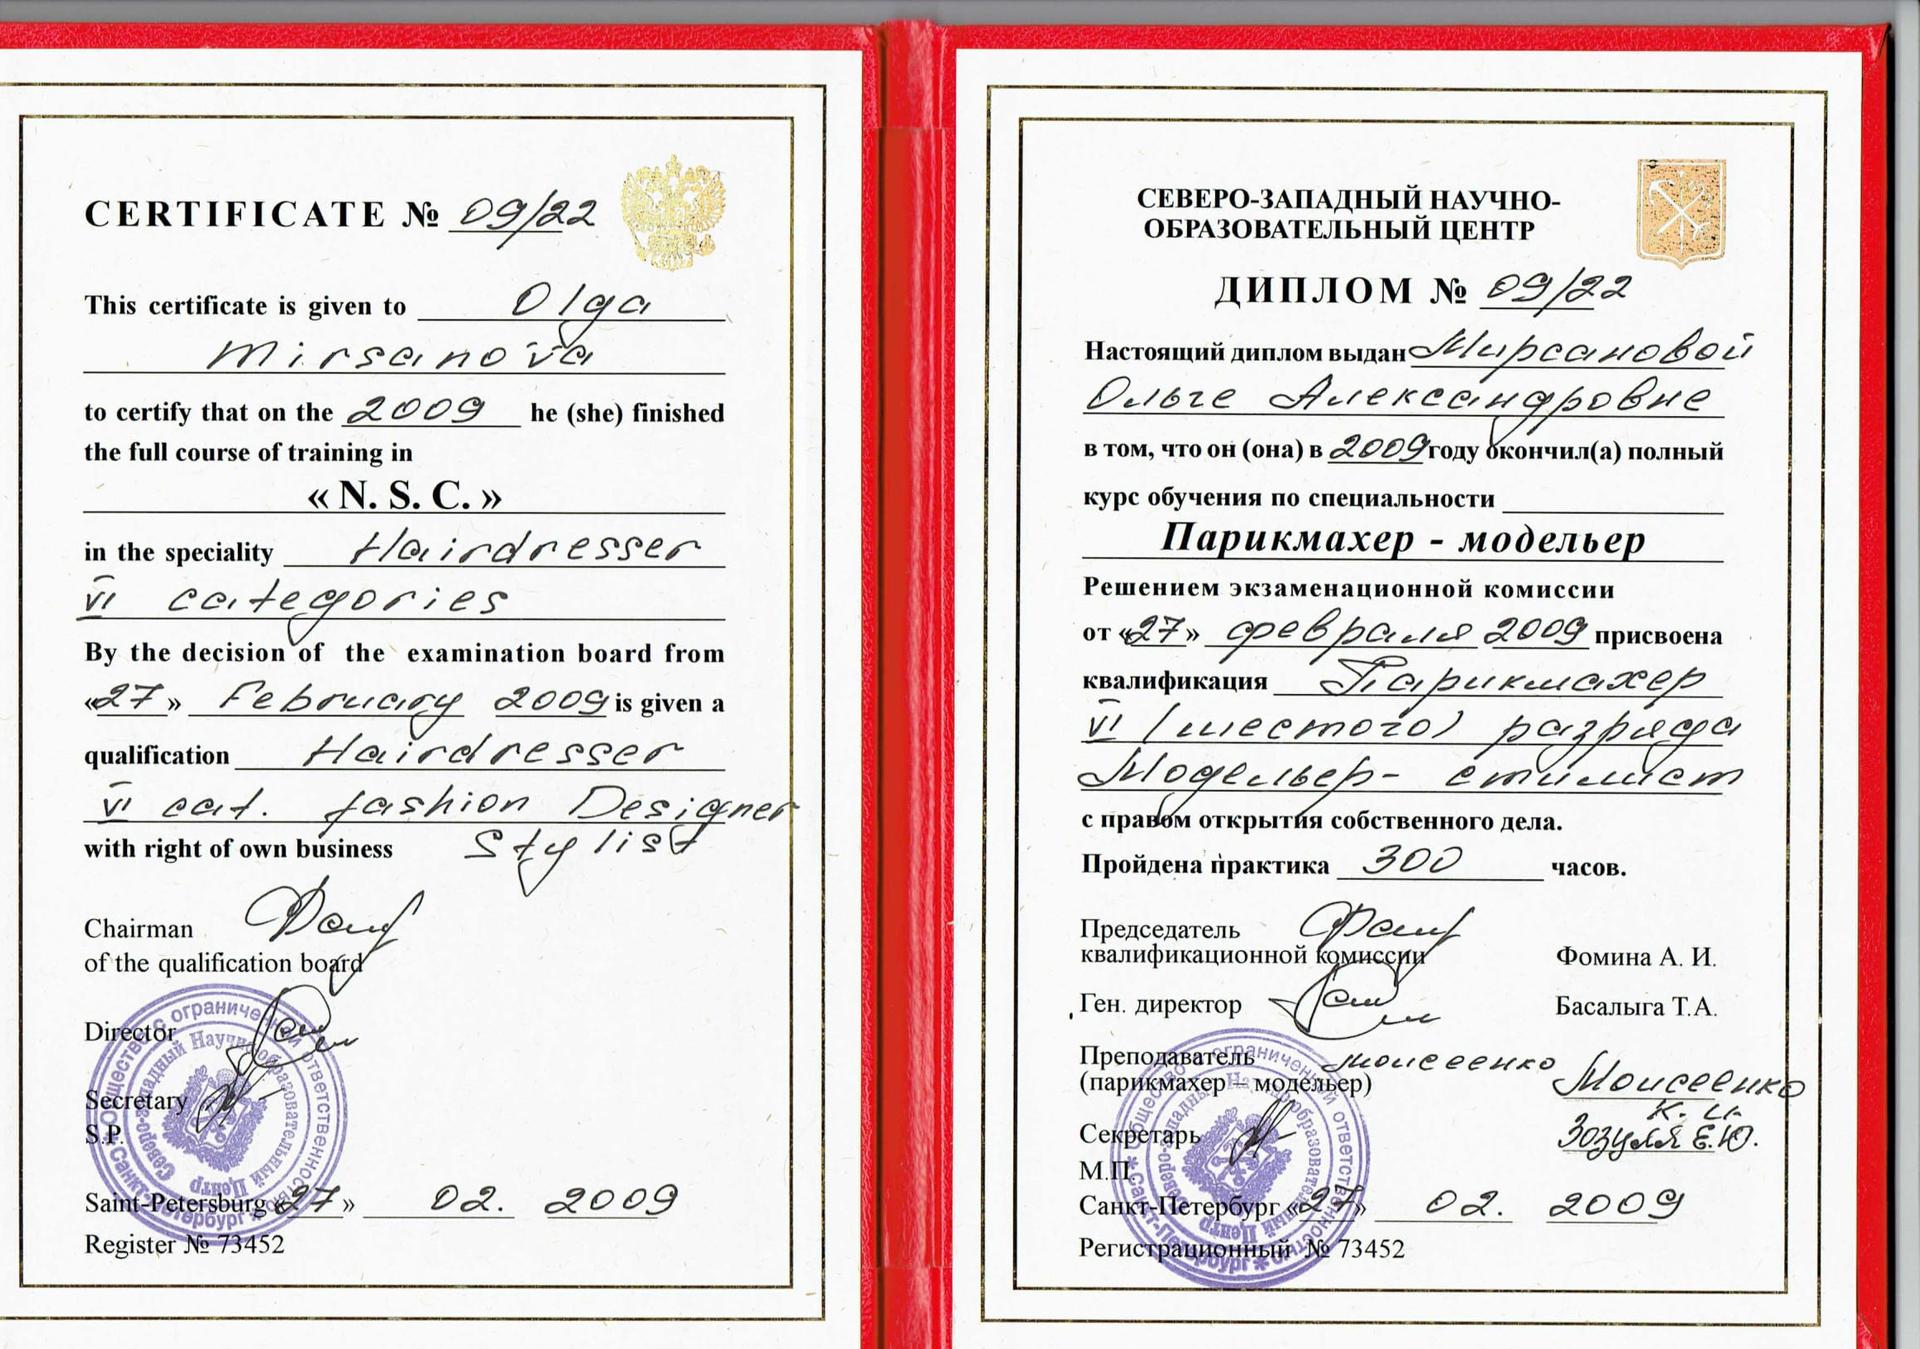 CERTIFICATE № 09/22
This certificate is given to Olga
Mirsanova
to certify that on the 2009 he (she) finished
the full course of training in
« N. S. C. »
in the speciality Hairdresser
VI categories
By the decision of the examination board from
«27» February 2009 is given a
qualification Hairdresser
VI cat. fashion Designer
with right of own business Stylist
Chairman
of the qualification board
Director
Secretary
S.P.
Saint-Petersburg 27» 02. 2009
Register № 73452
Общество с ограниченной ответственностью
Северо-Западный Научно-образовательный Центр
Санкт-Петербург
СЕВЕРО-ЗАПАДНЫЙ НАУЧНО-
ОБРАЗОВАТЕЛЬНЫЙ ЦЕНТР
ДИПЛОМ № 09/22
Настоящий диплом выдан Мирсановой
Ольге Александровне
в том, что он (она) в 2009 году окончил(а) полный
курс обучения по специальности
Парикмахер - модельер
Решением экзаменационной комиссии
от «27» февраля 2009 присвоена
квалификация Парикмахер
VI (шестого) разряда
Модельер- стилист
с правом открытия собственного дела.
Пройдена практика 300 часов.
Председатель
квалификационной комиссии Фомина А. И.
Ген. директор Басалыга Т.А.
Преподаватель Моисеенко
(парикмахер – модельер) Моисеенко
К. И.
Секретарь Зозуля Е.Ю.
М.П.
Санкт-Петербург «27» 02. 2009
Регистрационный № 73452
Общество с ограниченной ответственностью
Северо-Западный Научно-образовательный Центр
Санкт-Петербург